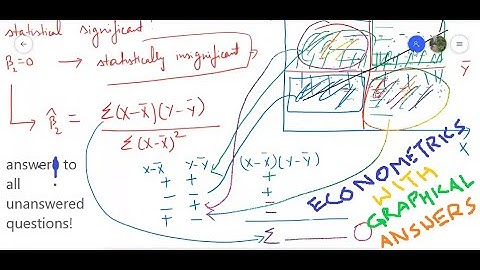 statistical significant
β₂=0 → statistically insignificant
β̂₂ = Σ(x-x̄)(y-ȳ)
Σ(x-x̄)²
x-x̄ y-ȳ (x-x̄)(y-ȳ)
+ + +
- + -
- - +
+ - -
Σ
ȳ
X
answer to
all
unanswered
questions!
ECONOMETRICS
WITH
GRAPHICAL
ANSWERS